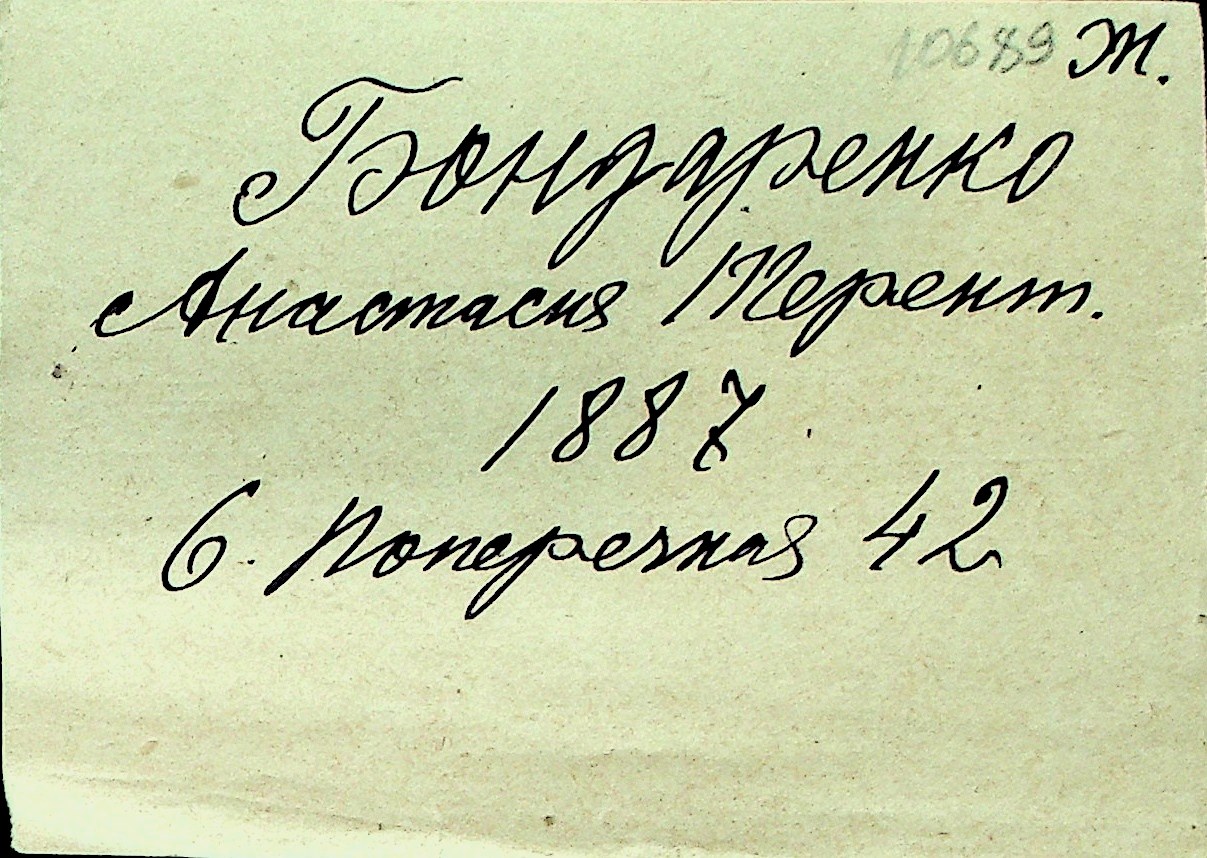 10689 Ж.
Бондаренко
Анастасия Терент.
1887
Б. Поперечная 42